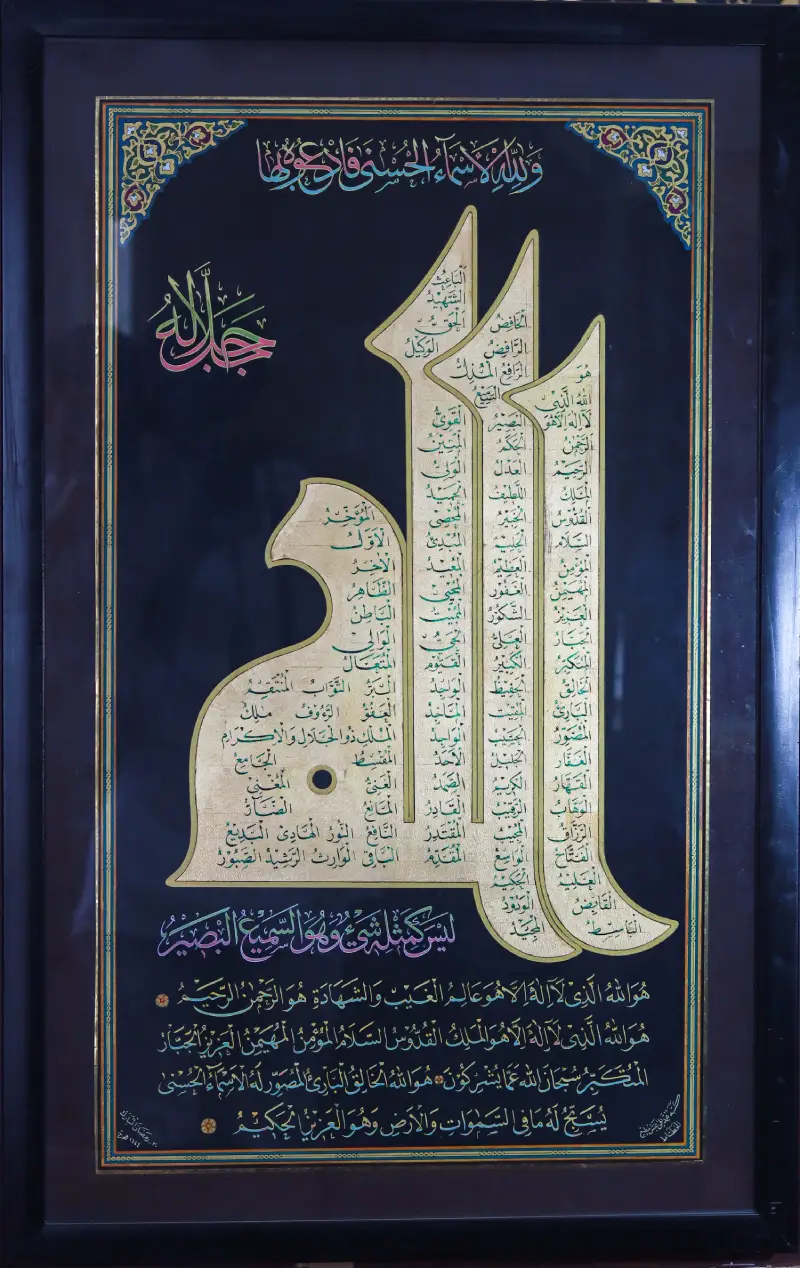 وَلِلَّهِ الْأَسْمَاءُ الْحُسْنَى فَادْعُوهُ بِهَا
جَلَّ جَلَالُهُ
هو
الله الذي
لا اله الا هو
الرحمن
الرحيم
الملك
القدوس
السلام
المؤمن
المهيمن
العزيز
الجبار
المتكبر
الخالق
البارئ
المصور
الغفار
القهار
الوهاب
الرزاق
الفتاح
العليم
القابض
الباسط
الخافض
الرافع المذل
السميع
البصير
الحكم
العدل
اللطيف
الخبير
الحليم
العظيم
الغفور
الشكور
العلي
الكبير
الحفيظ
المقيت
الحسيب
الجليل
الكريم
الرقيب
المجيب
الواسع
الحكيم
الودود
المجيد
الباعث
الشهيد
الحق
الوكيل
القوي
المتين
الولي
الحميد
المحصي
المبدئ
المعيد
المحيي
المميت
الحي
القيوم
الواجد
الماجد
الواحد
الأحد
الصمد
القادر
المقتدر
المقدم
المؤخر
الأول
الآخر
الظاهر
الباطن
الوالي
المتعال
البر التواب المنتقم
العفو الرءوف ملك
الملك ذو الجلال والاكرام
المقسط الجامع
الغني المغني
المانع الضار
النافع النور الهادي البديع
الباقي الوارث الرشيد الصبور
لَيْسَ كَمِثْلِهِ شَيْءٌ وَهُوَ السَّمِيعُ الْبَصِيرُ
هُوَ اللهُ الَّذِي لَا إِلَهَ إِلَّا هُوَ عَالِمُ الْغَيْبِ وَالشَّهَادَةِ هُوَ الرَّحْمَنُ الرَّحِيمُ
هُوَ اللهُ الَّذِي لَا إِلَهَ إِلَّا هُوَ الْمَلِكُ الْقُدُّوسُ السَّلَامُ الْمُؤْمِنُ الْمُهَيْمِنُ الْعَزِيزُ الْجَبَّارُ
الْمُتَكَبِّرُ سُبْحَانَ اللهِ عَمَّا يُشْرِكُونَ هُوَ اللهُ الْخَالِقُ الْبَارِئُ الْمُصَوِّرُ لَهُ الْأَسْمَاءُ الْحُسْنَى
يُسَبِّحُ لَهُ مَا فِي السَّمَوَاتِ وَالْأَرْضِ وَهُوَ الْعَزِيزُ الْحَكِيمُ